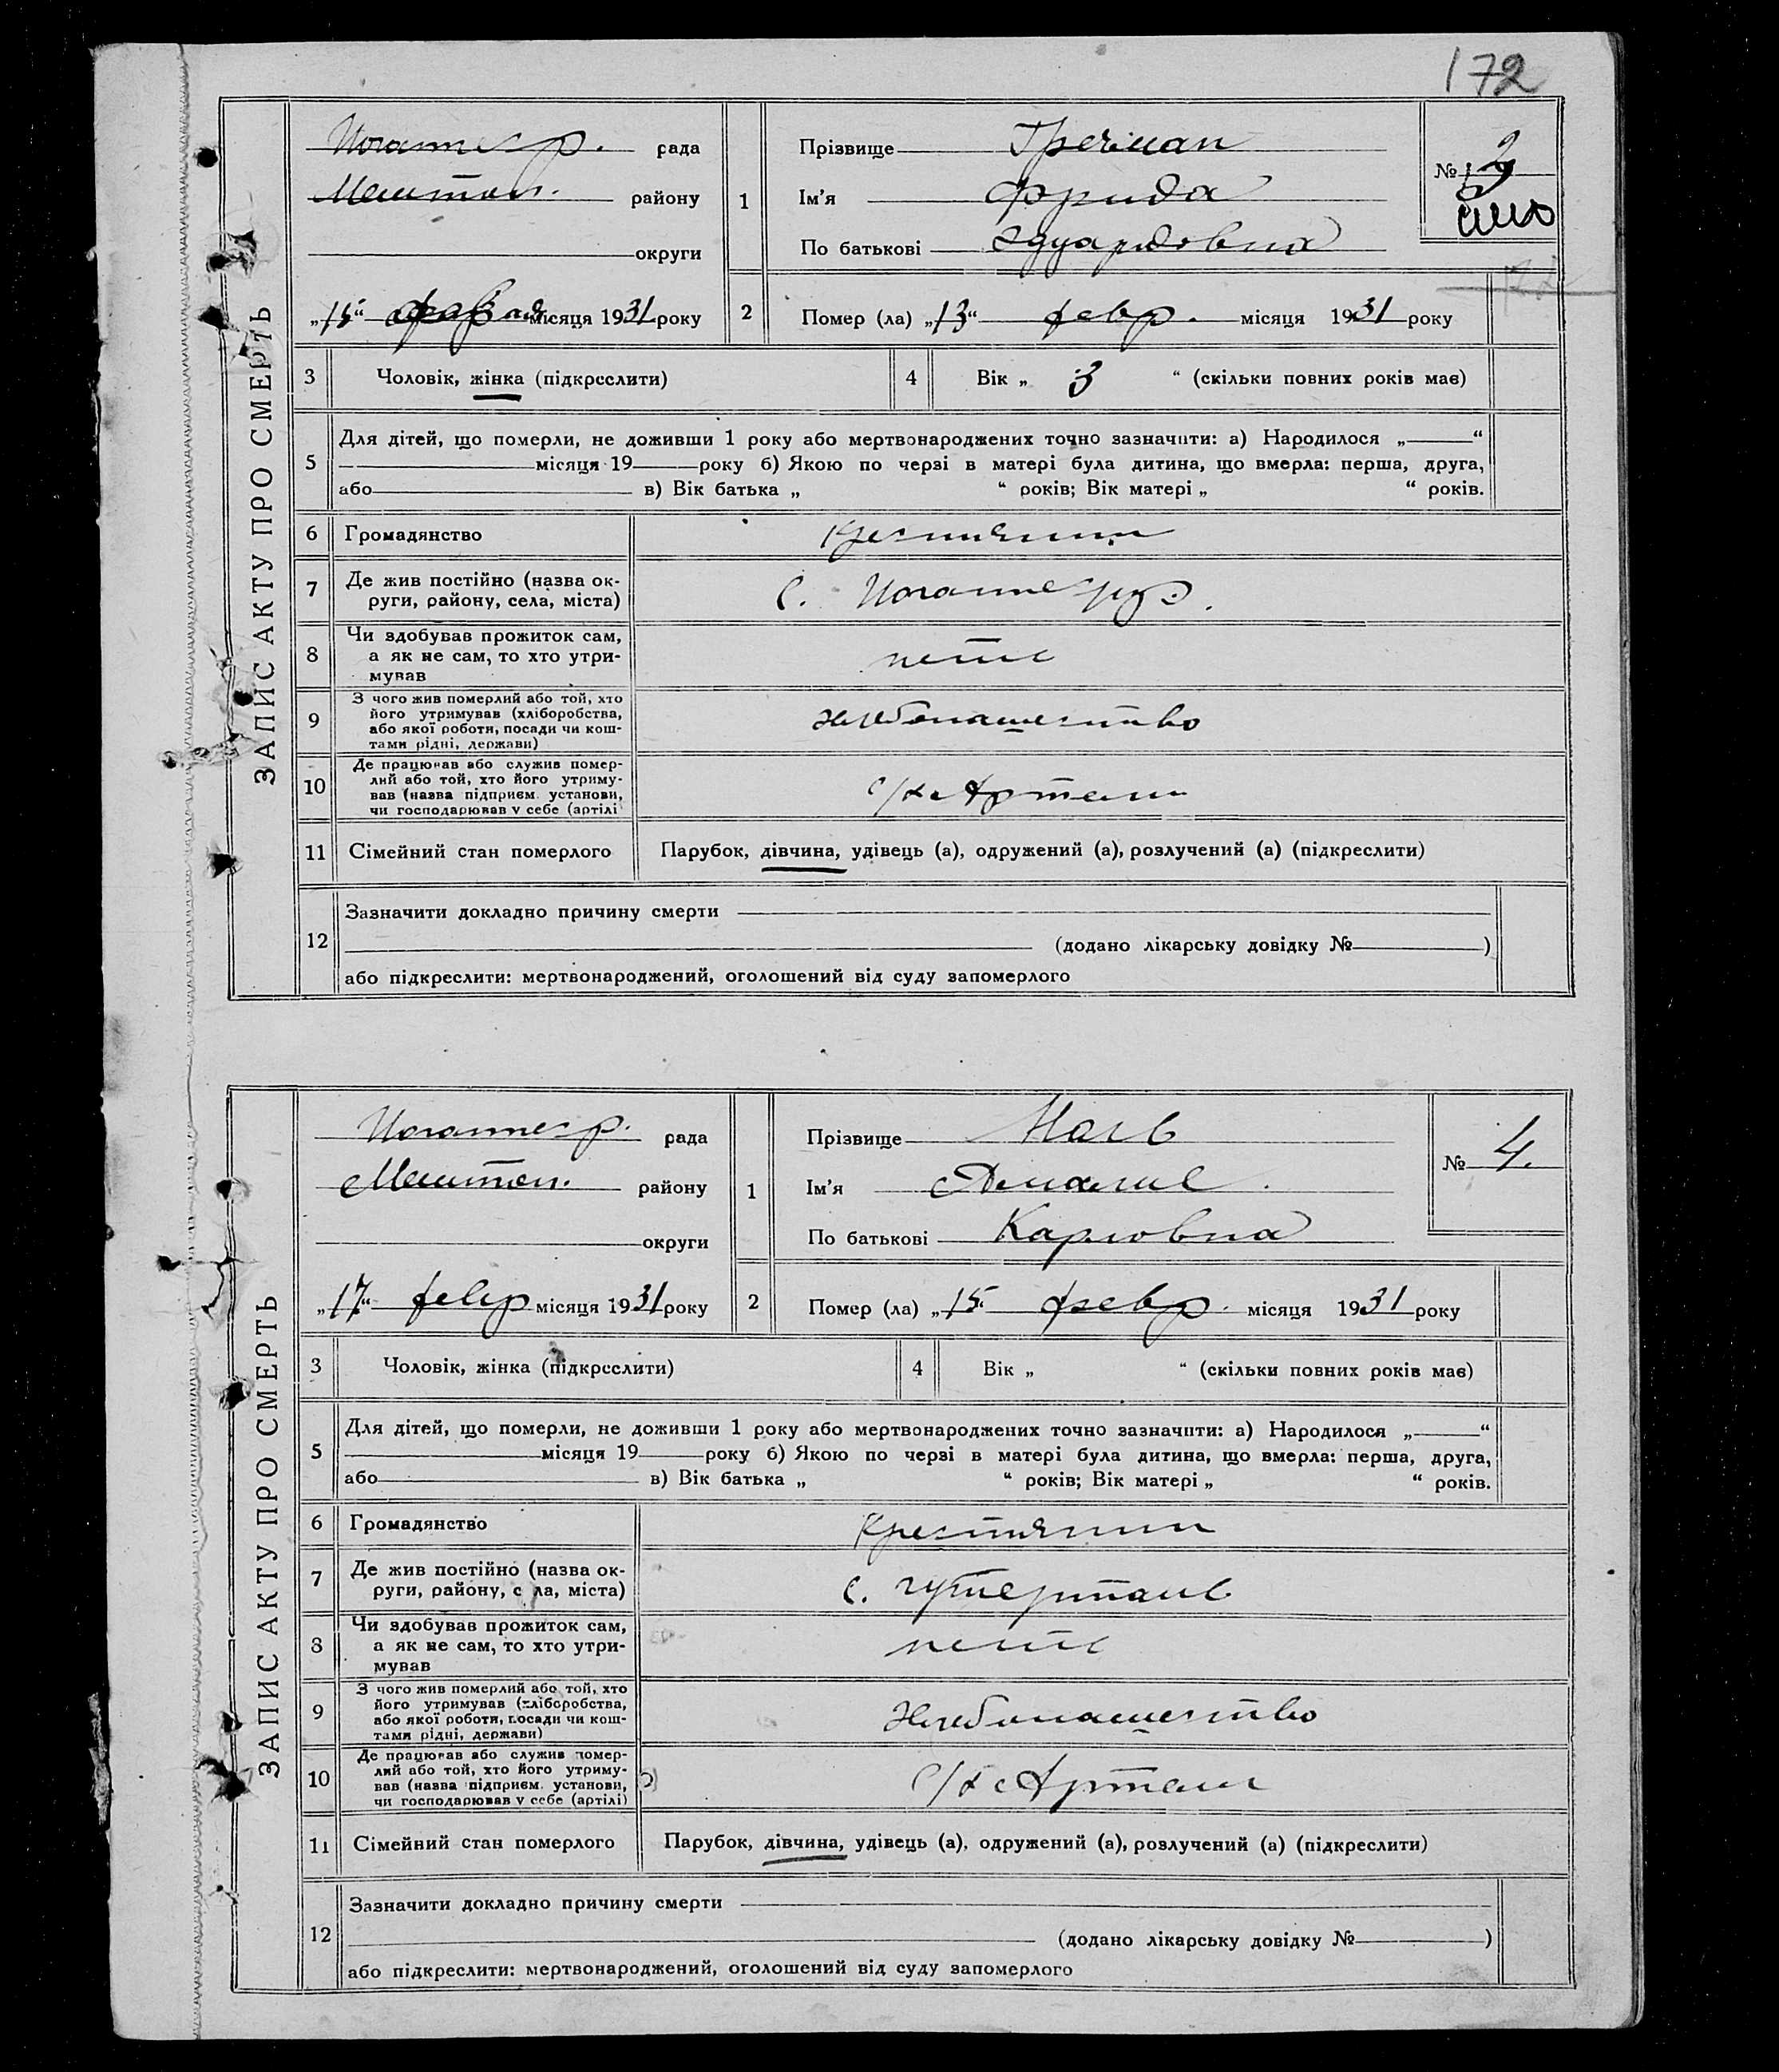 172
ЗАПИС АКТУ ПРО СМЕРТЬ
рада
району
округи
„15“ місяця 1931 року
1
Прізвище Гречман
Ім'я Фрида
По батькові Эдуардовна
№
2 Помер (ла) „13“ февр. місяця 1931 року
3 Чоловік, жінка (підкреслити)
4 Вік „ 3 “ (скільки повних років має)
5 Для дітей, що померли, не доживши 1 року або мертвонароджених точно зазначити: а) Народилося „ “
місяця 19 року б) Якою по черзі в матері була дитина, що вмерла: перша, друга,
або в) Вік батька „ “ років; Вік матері „ “ років.
6 Громадянство
7 Де жив постійно (назва ок-
руги, району, села, міста)
с.
8 Чи здобував прожиток сам,
а як не сам, то хто утри-
мував
9 З чого жив померлий або той, хто
його утримував (хліборобства,
або якої роботи, посади чи кош-
тами рідні, держави)
Хлебопашество
10 Де працював або служив помер-
лий або той, хто його утриму-
вав (назва підприєм. установи,
чи господарював у себе (артілі)
с/х Артели
11 Сімейний стан померлого
Парубок, дівчина, удівець (а), одружений (а), розлучений (а) (підкреслити)
12 Зазначити докладно причину смерти
(додано лікарську довідку № )
або підкреслити: мертвонароджений, оголошений від суду запомерлого
ЗАПИС АКТУ ПРО СМЕРТЬ
рада
району
округи
„17“ февр місяця 1931 року
1
Прізвище
Ім'я Амалие
По батькові Карловна
№ 4.
2 Помер (ла) „15“ февр. місяця 1931 року
3 Чоловік, жінка (підкреслити)
4 Вік „ “ (скільки повних років має)
5 Для дітей, що померли, не доживши 1 року або мертвонароджених точно зазначити: а) Народилося „ “
місяця 19 року б) Якою по черзі в матері була дитина, що вмерла: перша, друга,
або в) Вік батька „ “ років; Вік матері „ “ років.
6 Громадянство
7 Де жив постійно (назва ок-
руги, району, села, міста)
с. гутерталь
8 Чи здобував прожиток сам,
а як не сам, то хто утри-
мував
9 З чого жив померлий або той, хто
його утримував (хліборобства,
або якої роботи, посади чи кош-
тами рідні, держави)
Хлебопашество
10 Де працював або служив помер-
лий або той, хто його утриму-
вав (назва підприєм. установи,
чи господарював у себе (артілі)
с/х Артели
11 Сімейний стан померлого
Парубок, дівчина, удівець (а), одружений (а), розлучений (а) (підкреслити)
12 Зазначити докладно причину смерти
(додано лікарську довідку № )
або підкреслити: мертвонароджений, оголошений від суду запомерлого